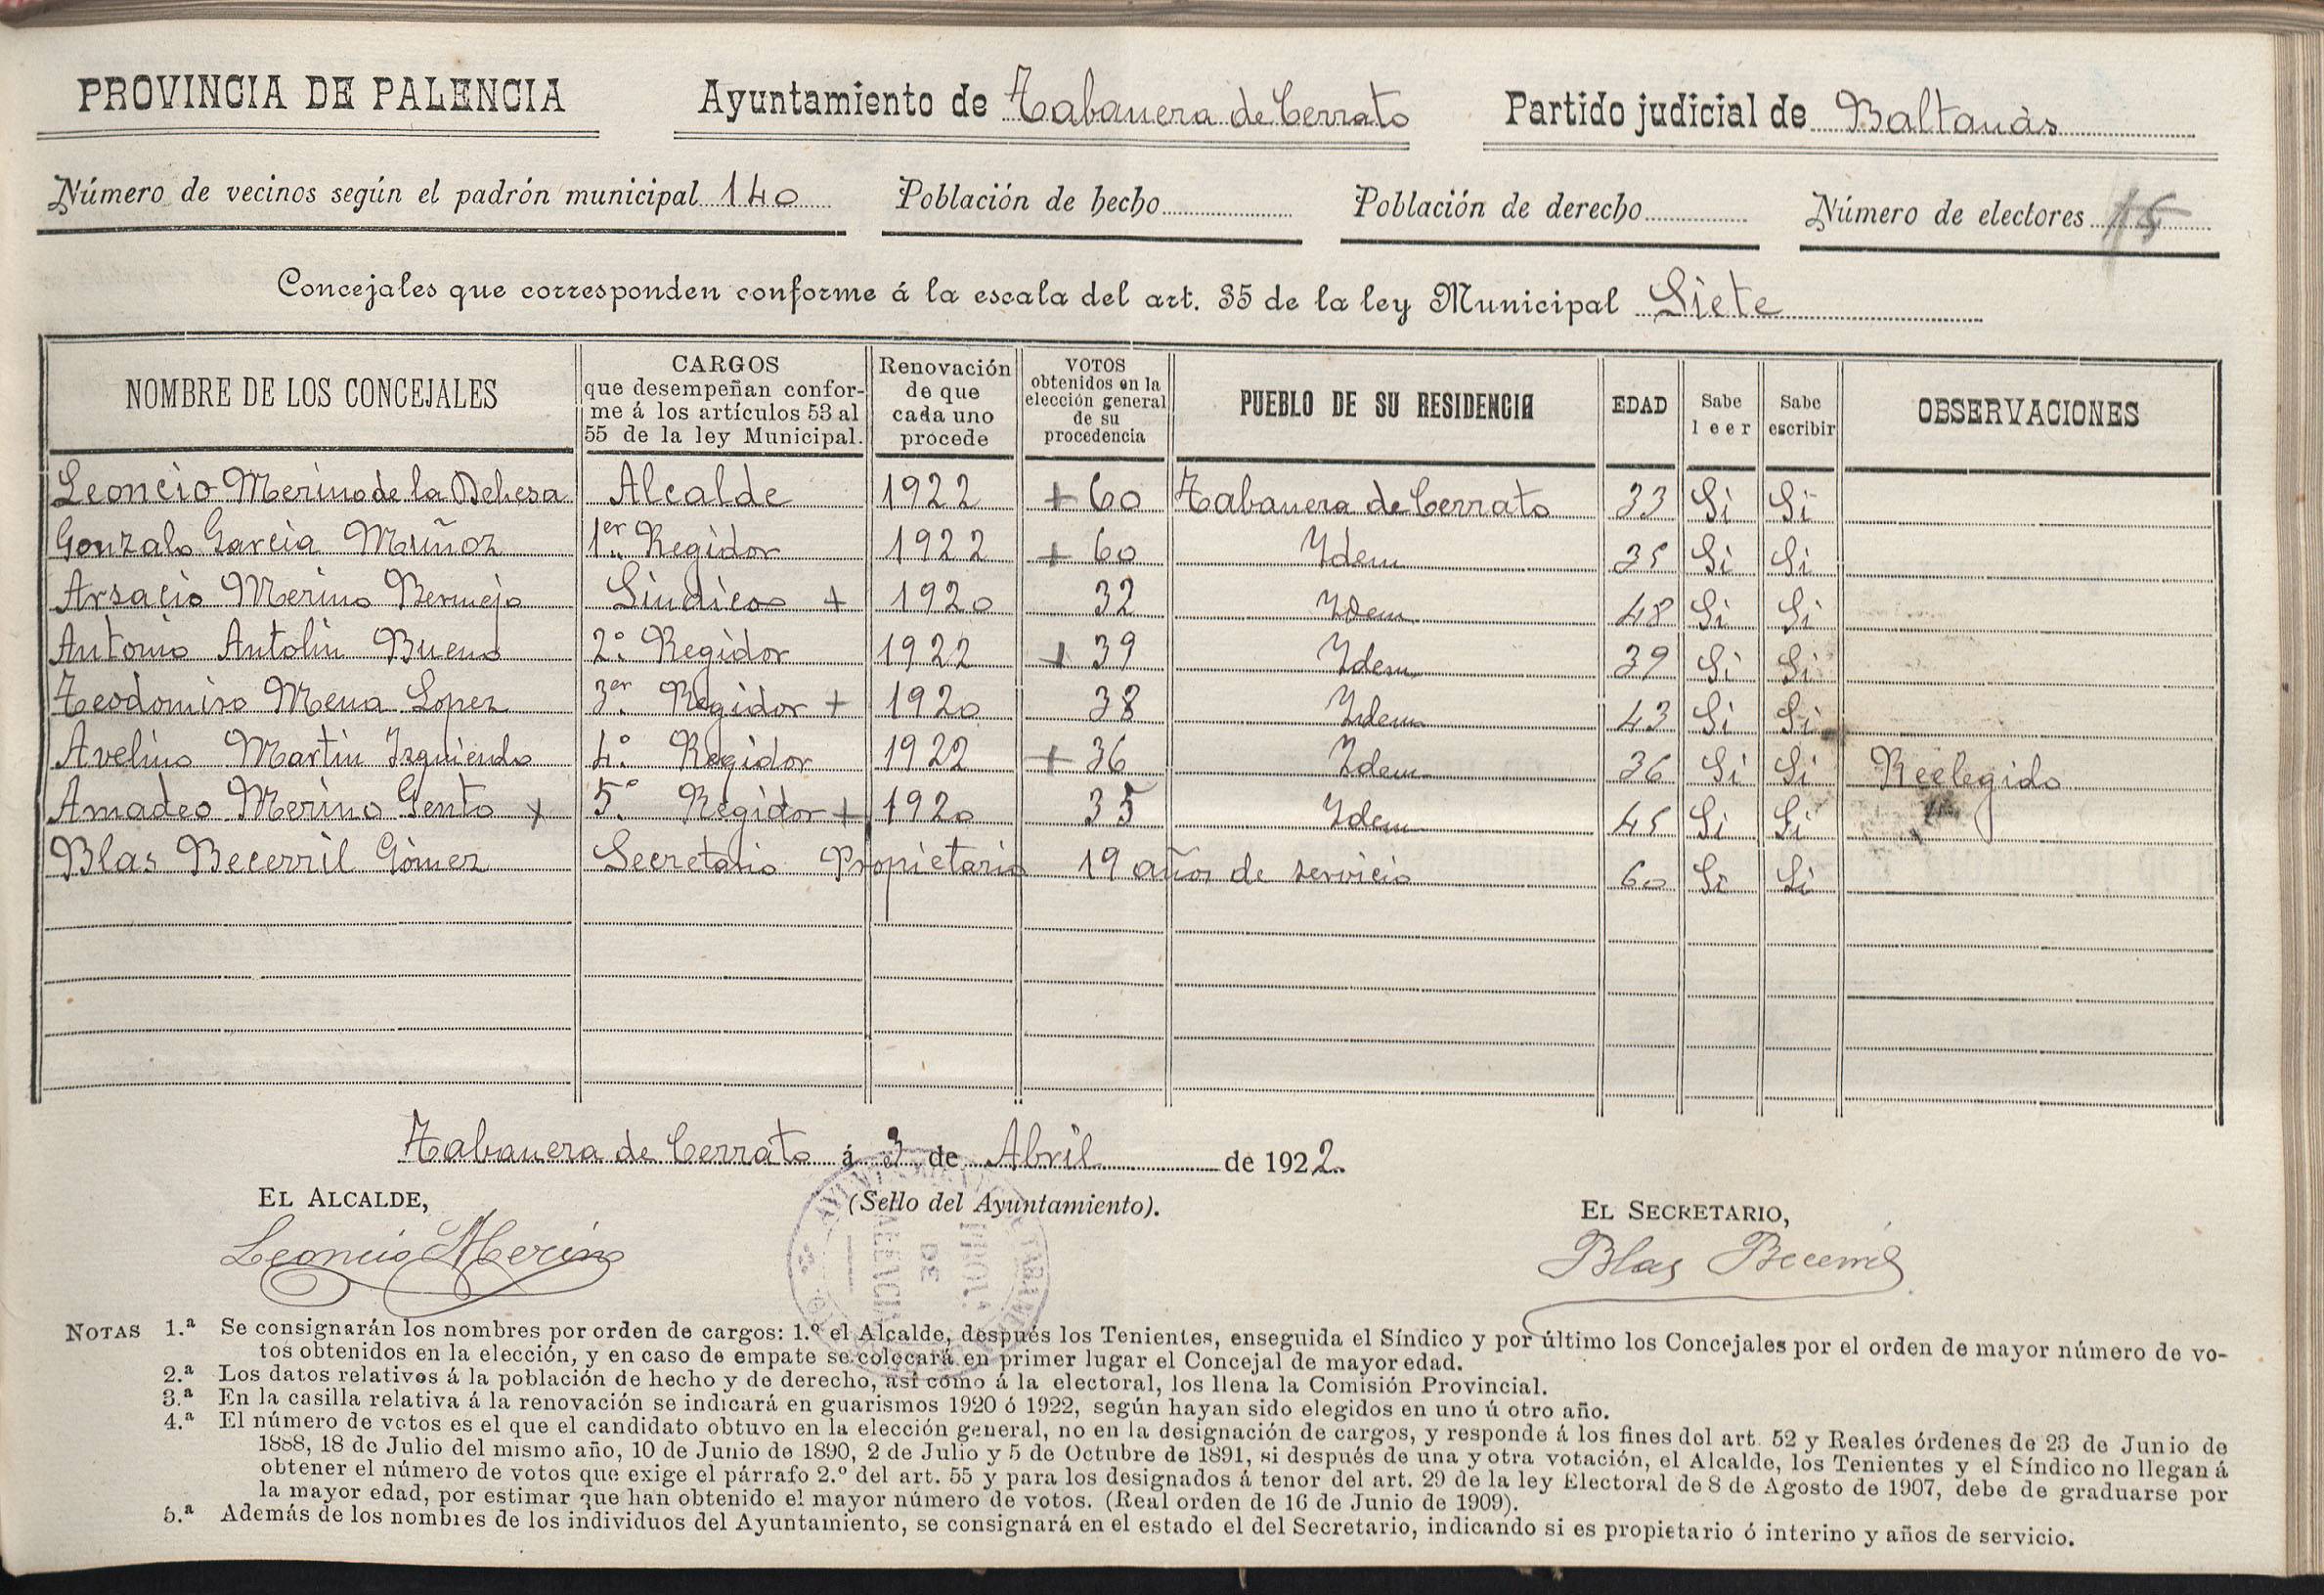 PROVINCIA DE PALENCIA Ayuntamiento de Tabanera de Cerrato Partido judicial de Baltanàs
Número de vecinos según el padrón municipal 140 Población de hecho Población de derecho Número de electores
Concejales que corresponden conforme á la escala del art. 35 de la ley Municipal Siete
NOMBRE DE LOS CONCEJALES CARGOS que desempeñan confor-me á los artículos 53 al 55 de la ley Municipal. Renovación de que cada uno procede VOTOS obtenidos en la elección general de su procedencia PUEBLO DE SU RESIDENCIA EDAD Sabe leer Sabe escribir OBSERVACIONES
Leoncio Merino de la Dehesa Alcalde 1922 + 60 Tabanera de Cerrato 33 Si Si
Gonzalo Garcia Muñoz 1er Regidor 1922 + 60 Idem 35 Si Si
Arsacio Merino Bermejo Sindico + 1920 32 Idem 48 Si Si
Antonio Antolin Bueno 2º Regidor 1922 + 39 Idem 39 Si Si
Teodomiro Mena Lopez 3er Regidor + 1920 38 Idem 43 Si Si
Avelino Martin Izquierdo 4º Regidor 1922 + 36 Idem 36 Si Si Reelegido
Amadeo Merino Gento + 5º Regidor + 1920 35 Idem 45 Si Si
Blas Becerril Gòmez Secretario Propietario 19 años de servicio 60 Si Si
Tabanera de Cerrato á 3 de Abril de 1922.
EL ALCALDE, (Sello del Ayuntamiento). EL SECRETARIO,
Leoncio Merino Blas Becerril
NOTAS 1.ª Se consignarán los nombres por orden de cargos: 1.º el Alcalde, después los Tenientes, enseguida el Síndico y por último los Concejales por el orden de mayor número de vo-
tos obtenidos en la elección, y en caso de empate se colocará en primer lugar el Concejal de mayor edad.
2.ª Los datos relativos á la población de hecho y de derecho, así como á la electoral, los llena la Comisión Provincial.
3.ª En la casilla relativa á la renovación se indicará en guarismos 1920 ó 1922, según hayan sido elegidos en uno ú otro año.
4.ª El número de votos es el que el candidato obtuvo en la elección general, no en la designación de cargos, y responde á los fines del art. 52 y Reales órdenes de 23 de Junio de
1888, 18 de Julio del mismo año, 10 de Junio de 1890, 2 de Julio y 5 de Octubre de 1891, si después de una y otra votación, el Alcalde, los Tenientes y el Síndico no llegan á
obtener el número de votos que exige el párrafo 2.º del art. 55 y para los designados á tenor del art. 29 de la ley Electoral de 8 de Agosto de 1907, debe de graduarse por
la mayor edad, por estimar que han obtenido el mayor número de votos. (Real orden de 16 de Junio de 1909).
5.ª Además de los nombres de los individuos del Ayuntamiento, se consignará en el estado el del Secretario, indicando si es propietario ó interino y años de servicio.